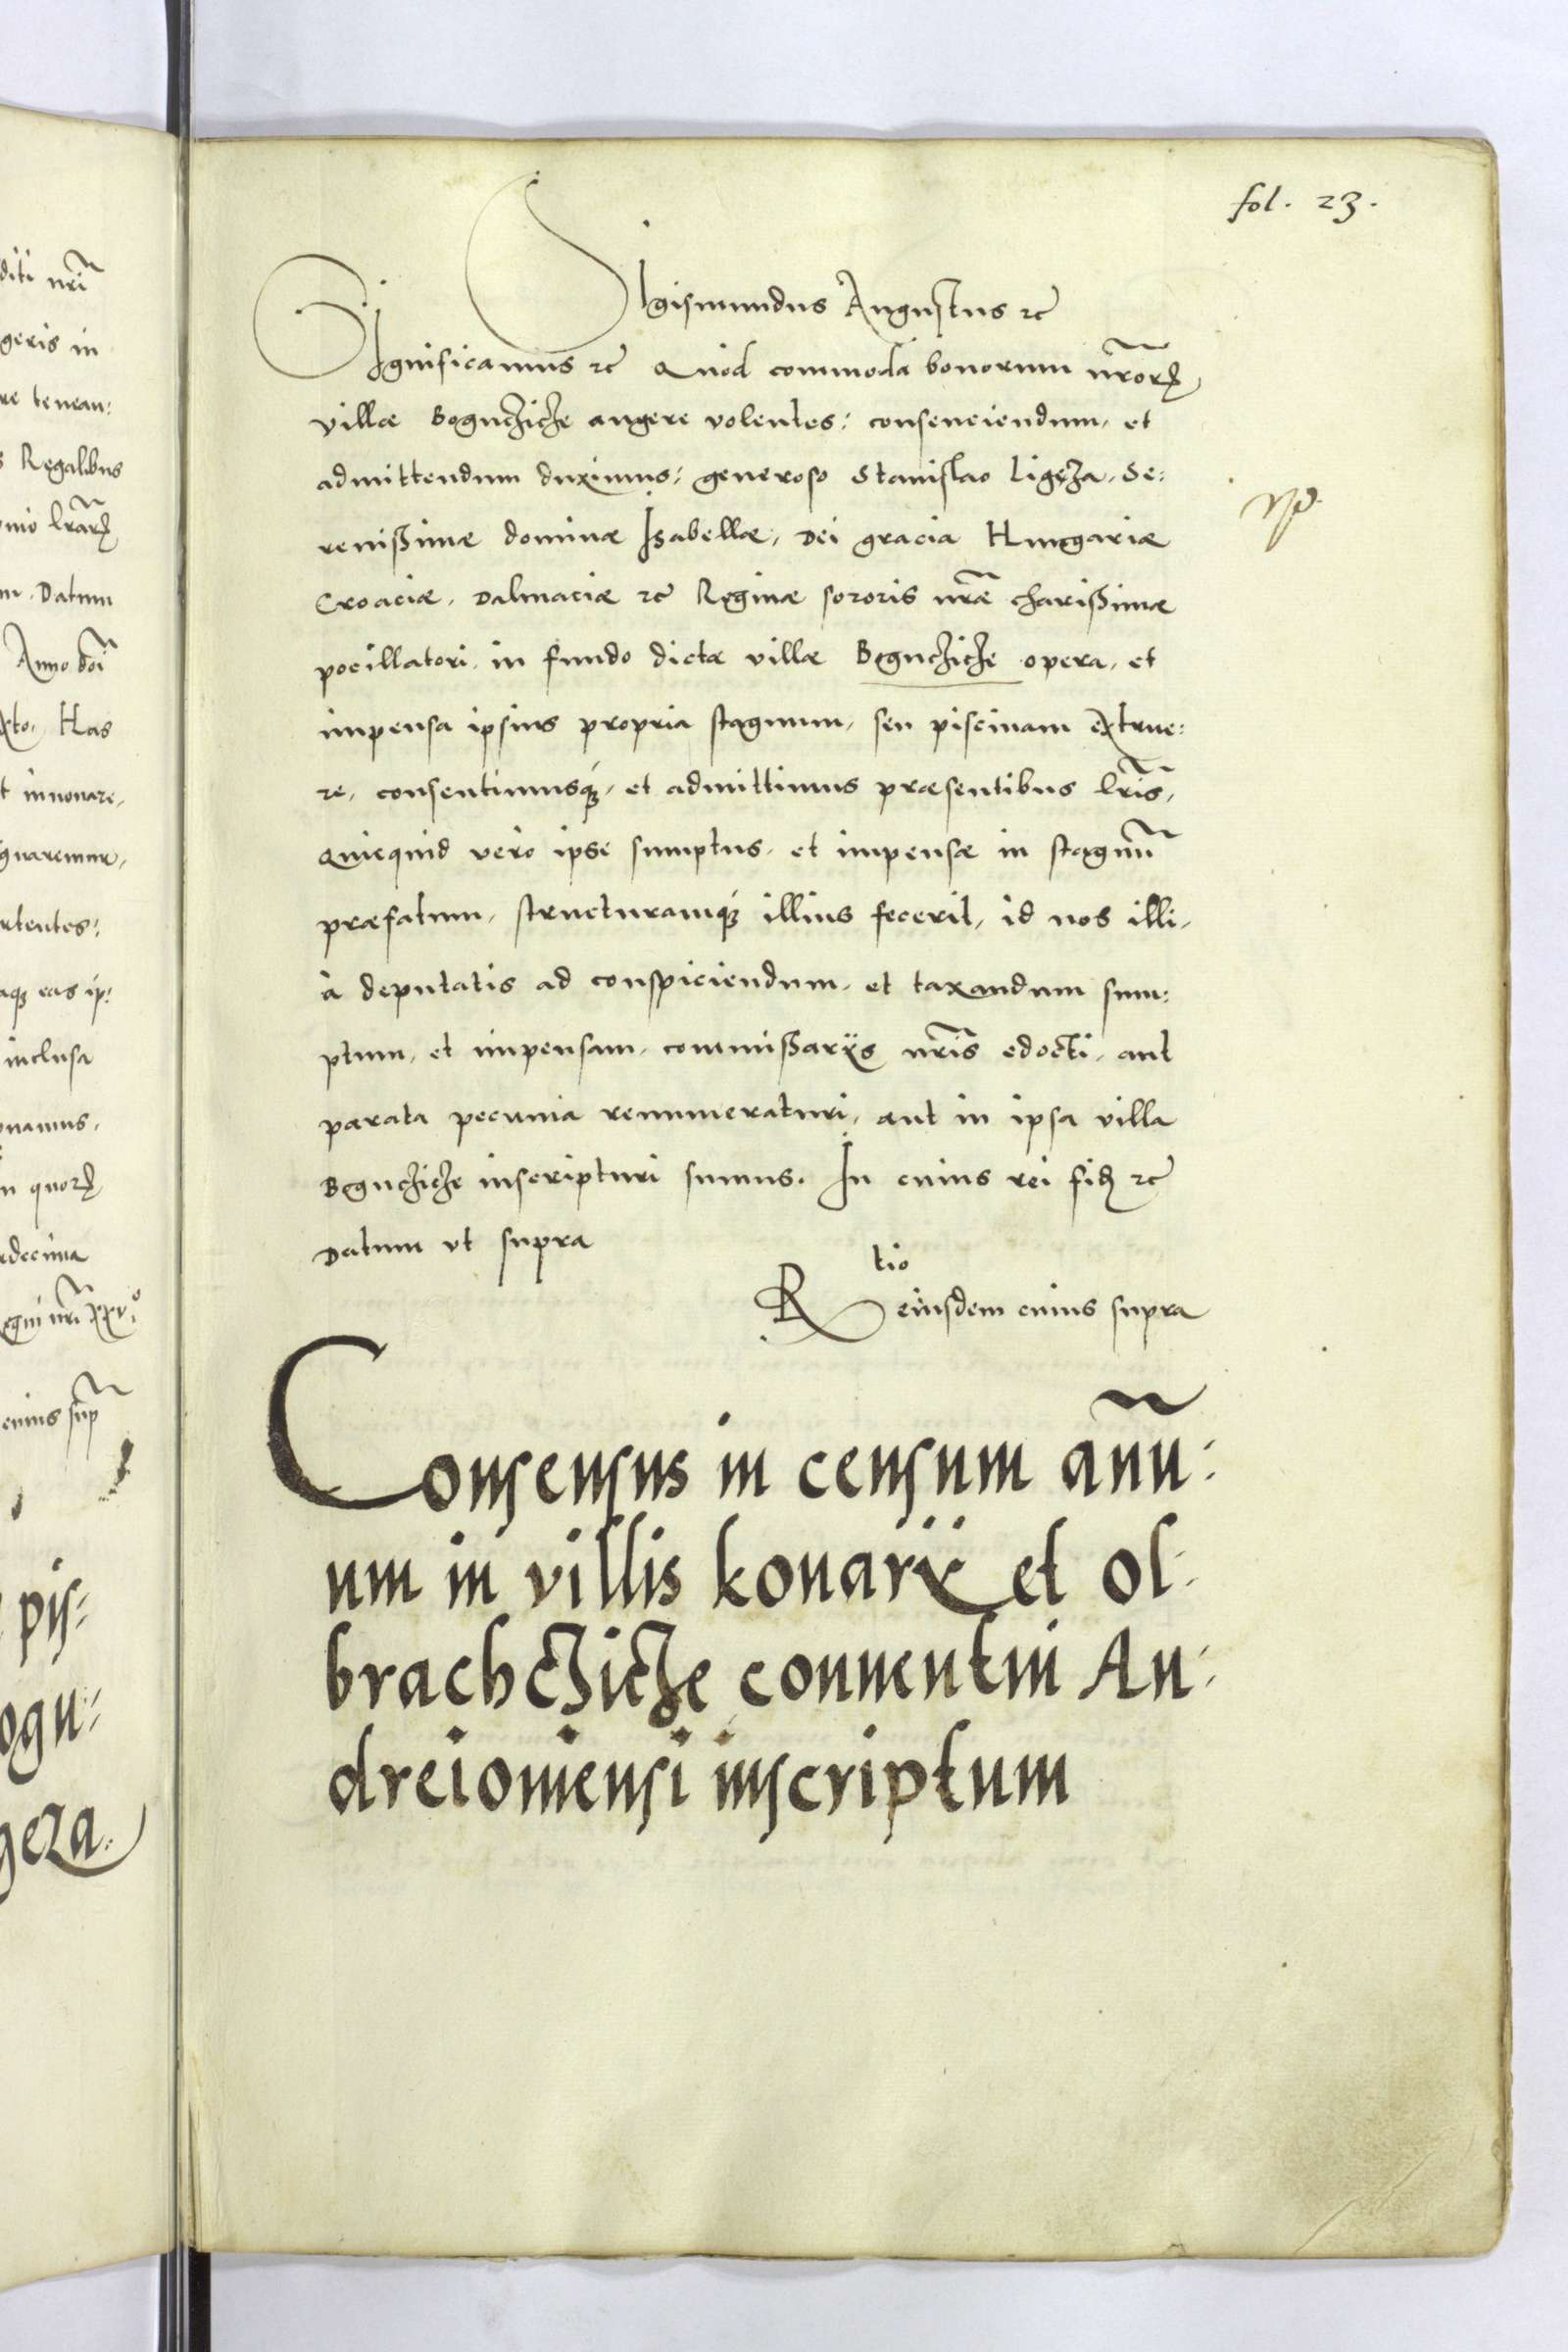 fol. 23.
Sigismundus Augustus etc
Significamus etc Quod commoda bonorum nrõrum
villæ Boguchiche augere volentes: consenciendum, et
admittendum duximus: generoso Stanislao Ligęza, Se:
renißimæ dominæ Isabellæ, Dei gracia Hungariæ
Croaciæ, Dalmaciæ etc Reginæ sororis nrãe charißimæ
pocillatori, in fundo dictæ villæ Boguchiche opera, et
impensa ipsius propria stagnum, seu piscinam extrue:
re, consentimusq́ꝫ, et admittimus præsentibus lrĩs,
Quicquid vero ipse sumptus, et impensæ in stagnũ
præfatum, structuramq́ꝫ illius fecerit, id nos illi,
à deputatis ad conspiciendum, et taxandum sum:
ptum, et impensam, commißarijs nrĩs edocti, aut
parata pecunia renumeraturi, aut in ipsa villa
Boguchiche inscripturi sumus. In cuius rei fidẽ etc
Datum vt supra
Rtio eiusdem cuius supra
Consensus in censum añu:
um in villis konarij et ol:
brachchiche conuentui An:
dreiouiensi inscriptum
diti nrĩ
geris in
re tenean:
s Regalibus
lrãrum
Datum
Anno doĩ
xto, Has
t innouare,
rtentes:
aqꝫ eas ip:
inclusa
namus,
n quorum
decima
egni nrĩ xxvi°
cuius sup̃
pis:
ogu:
geza.